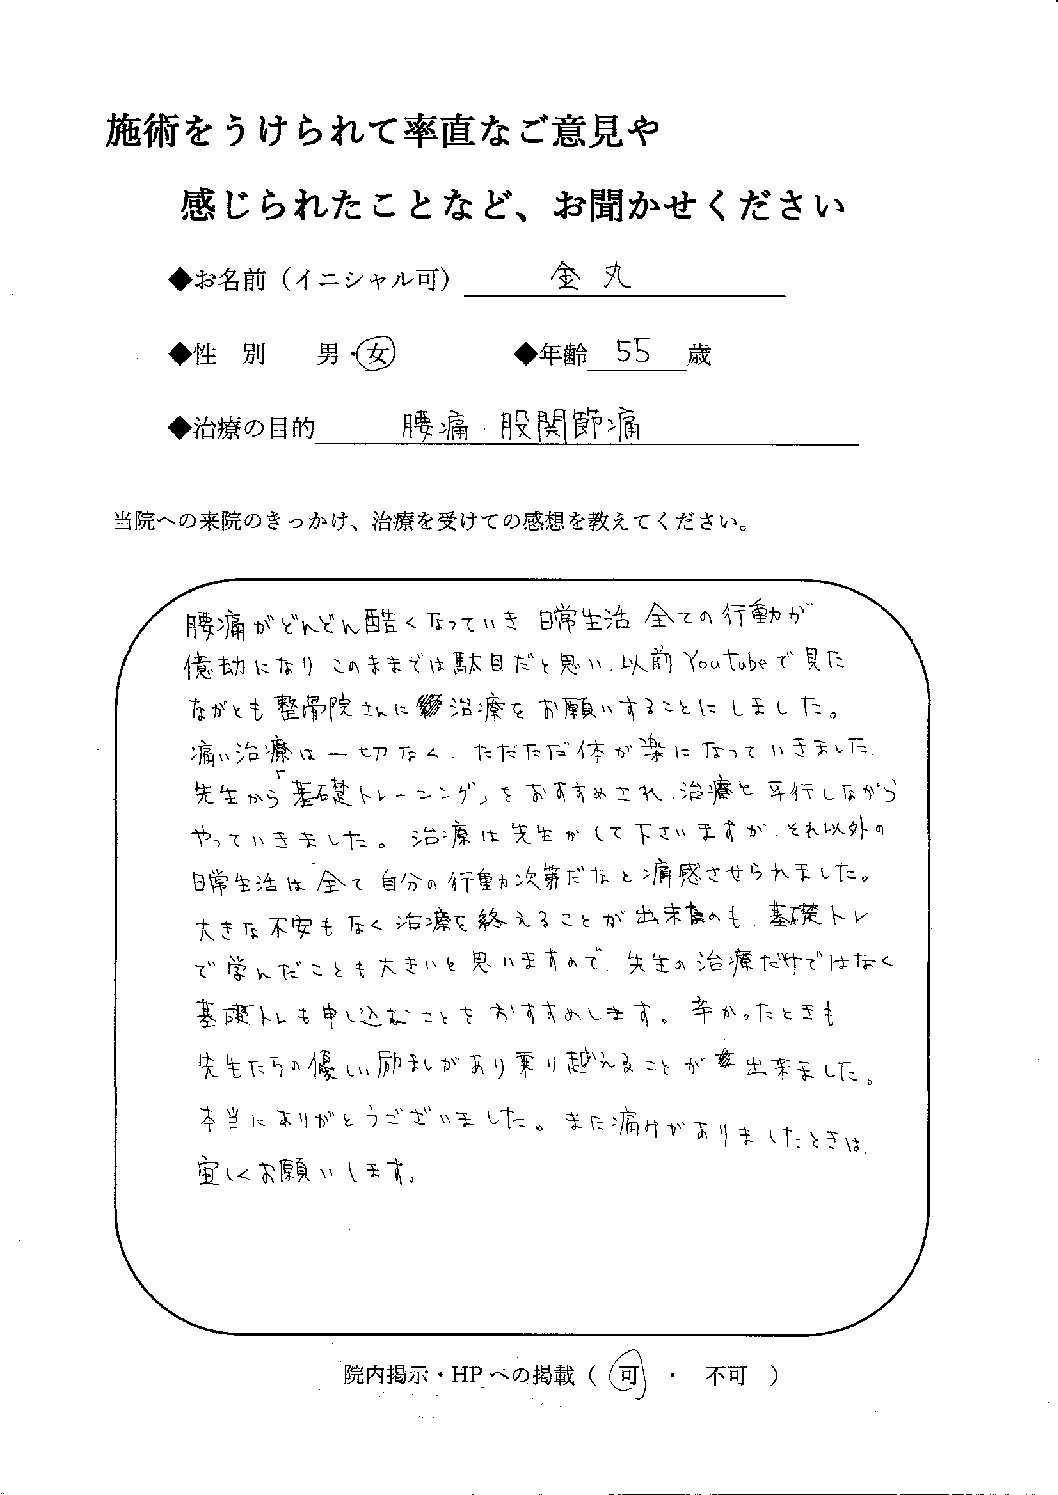 施術をうけられて率直なご意見や
感じられたことなど、お聞かせください
◆お名前（イニシャル可） 金丸
◆性 別 男・女 ◆年齢 55 歳
◆治療の目的 腰痛・股関節痛
当院への来院のきっかけ、治療を受けての感想を教えてください。
腰痛がどんどん酷くなっていき 日常生活 全ての行動が
億劫になり このままでは駄目だと思い、以前YouTubeで見た
ながとも整骨院さんに治療をお願いすることにしました。
痛い治療は一切なく、ただただ体が楽になっていきました。
先生から「基礎トレーニング」をおすすめされ、治療と平行しながら
やっていきました。治療は先生がして下さいますが、それ以外の
日常生活は全て自分の行動力次第だなと痛感させられました。
大きな不安もなく治療を終えることが出来たのも、基礎トレ
で学んだことも大きいと思いますので、先生の治療だけではなく
基礎トレも申し込むことをおすすめします。辛かったときも
先生たちの優しい励ましがあり乗り越えることが出来ました。
本当にありがとうございました。また痛みがありましたときは、
宜しくお願いします。
院内掲示・HPへの掲載（ 可 ・ 不可 ）